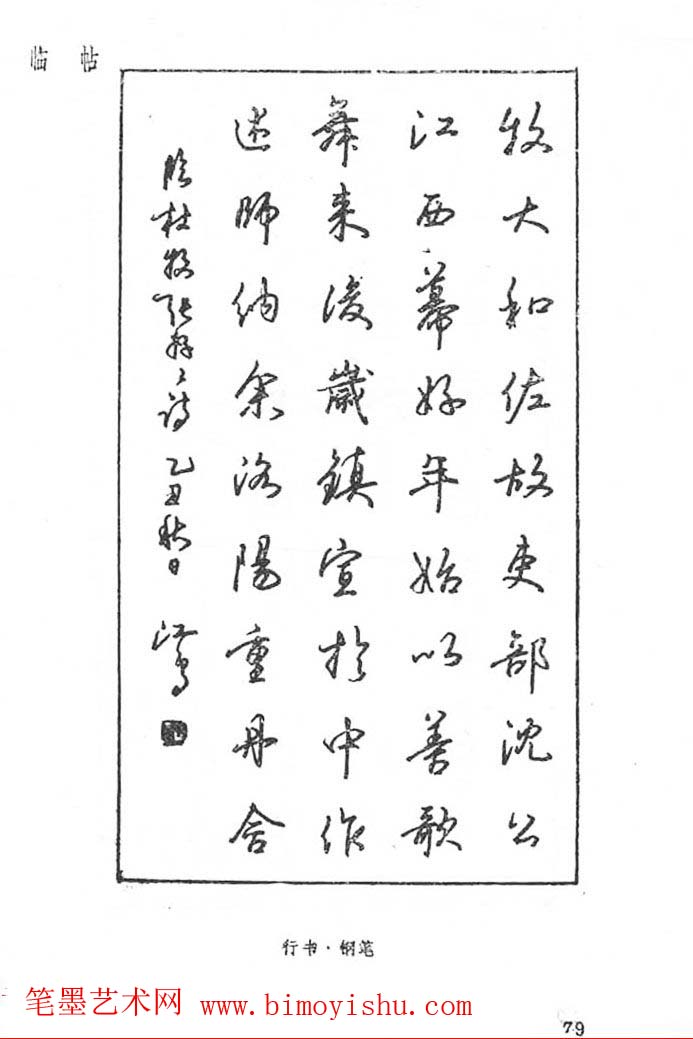 临帖
牧大和佐故吏部沈公
江西幕好年始以善歌
舞来後歲鎮宣於中作
述師纳余洛陽重丹舍
临杜牧张好〻诗 乙丑秋日
行书·钢笔
笔墨艺术网 www.bimoyishu.com
79